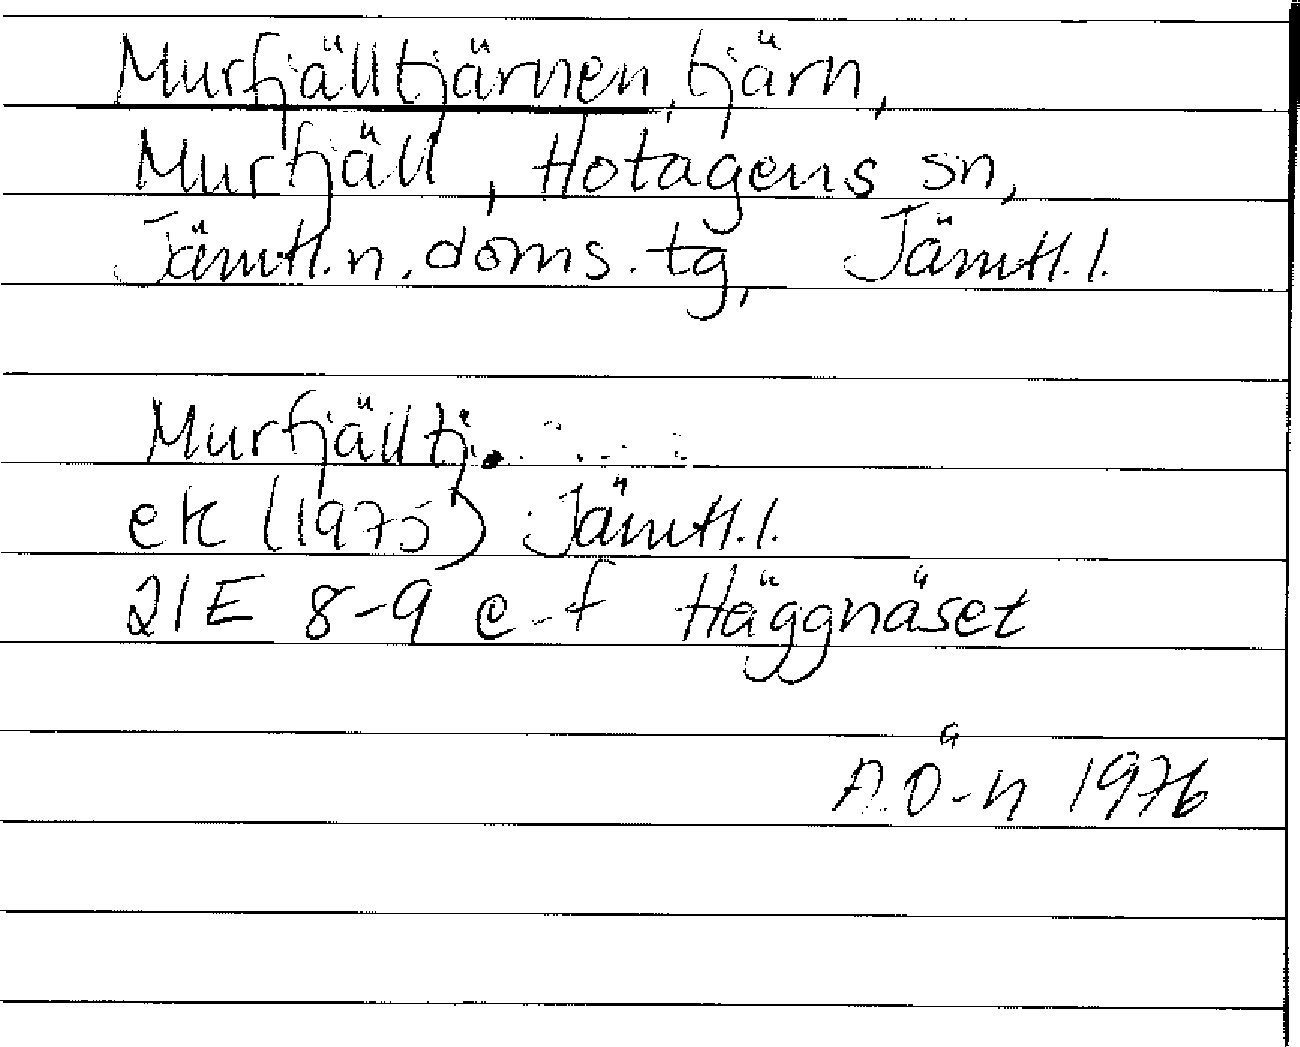 Murfjälltjärnen, tjärn,
Murfjäll, Hotagens sn,
Jämtl.n.doms.tg, Jämtl.l.
Murfjälltj.
ek (1975) Jämtl.l.
21E 8-9 e-f Häggnäset
A.Ö-n 1976